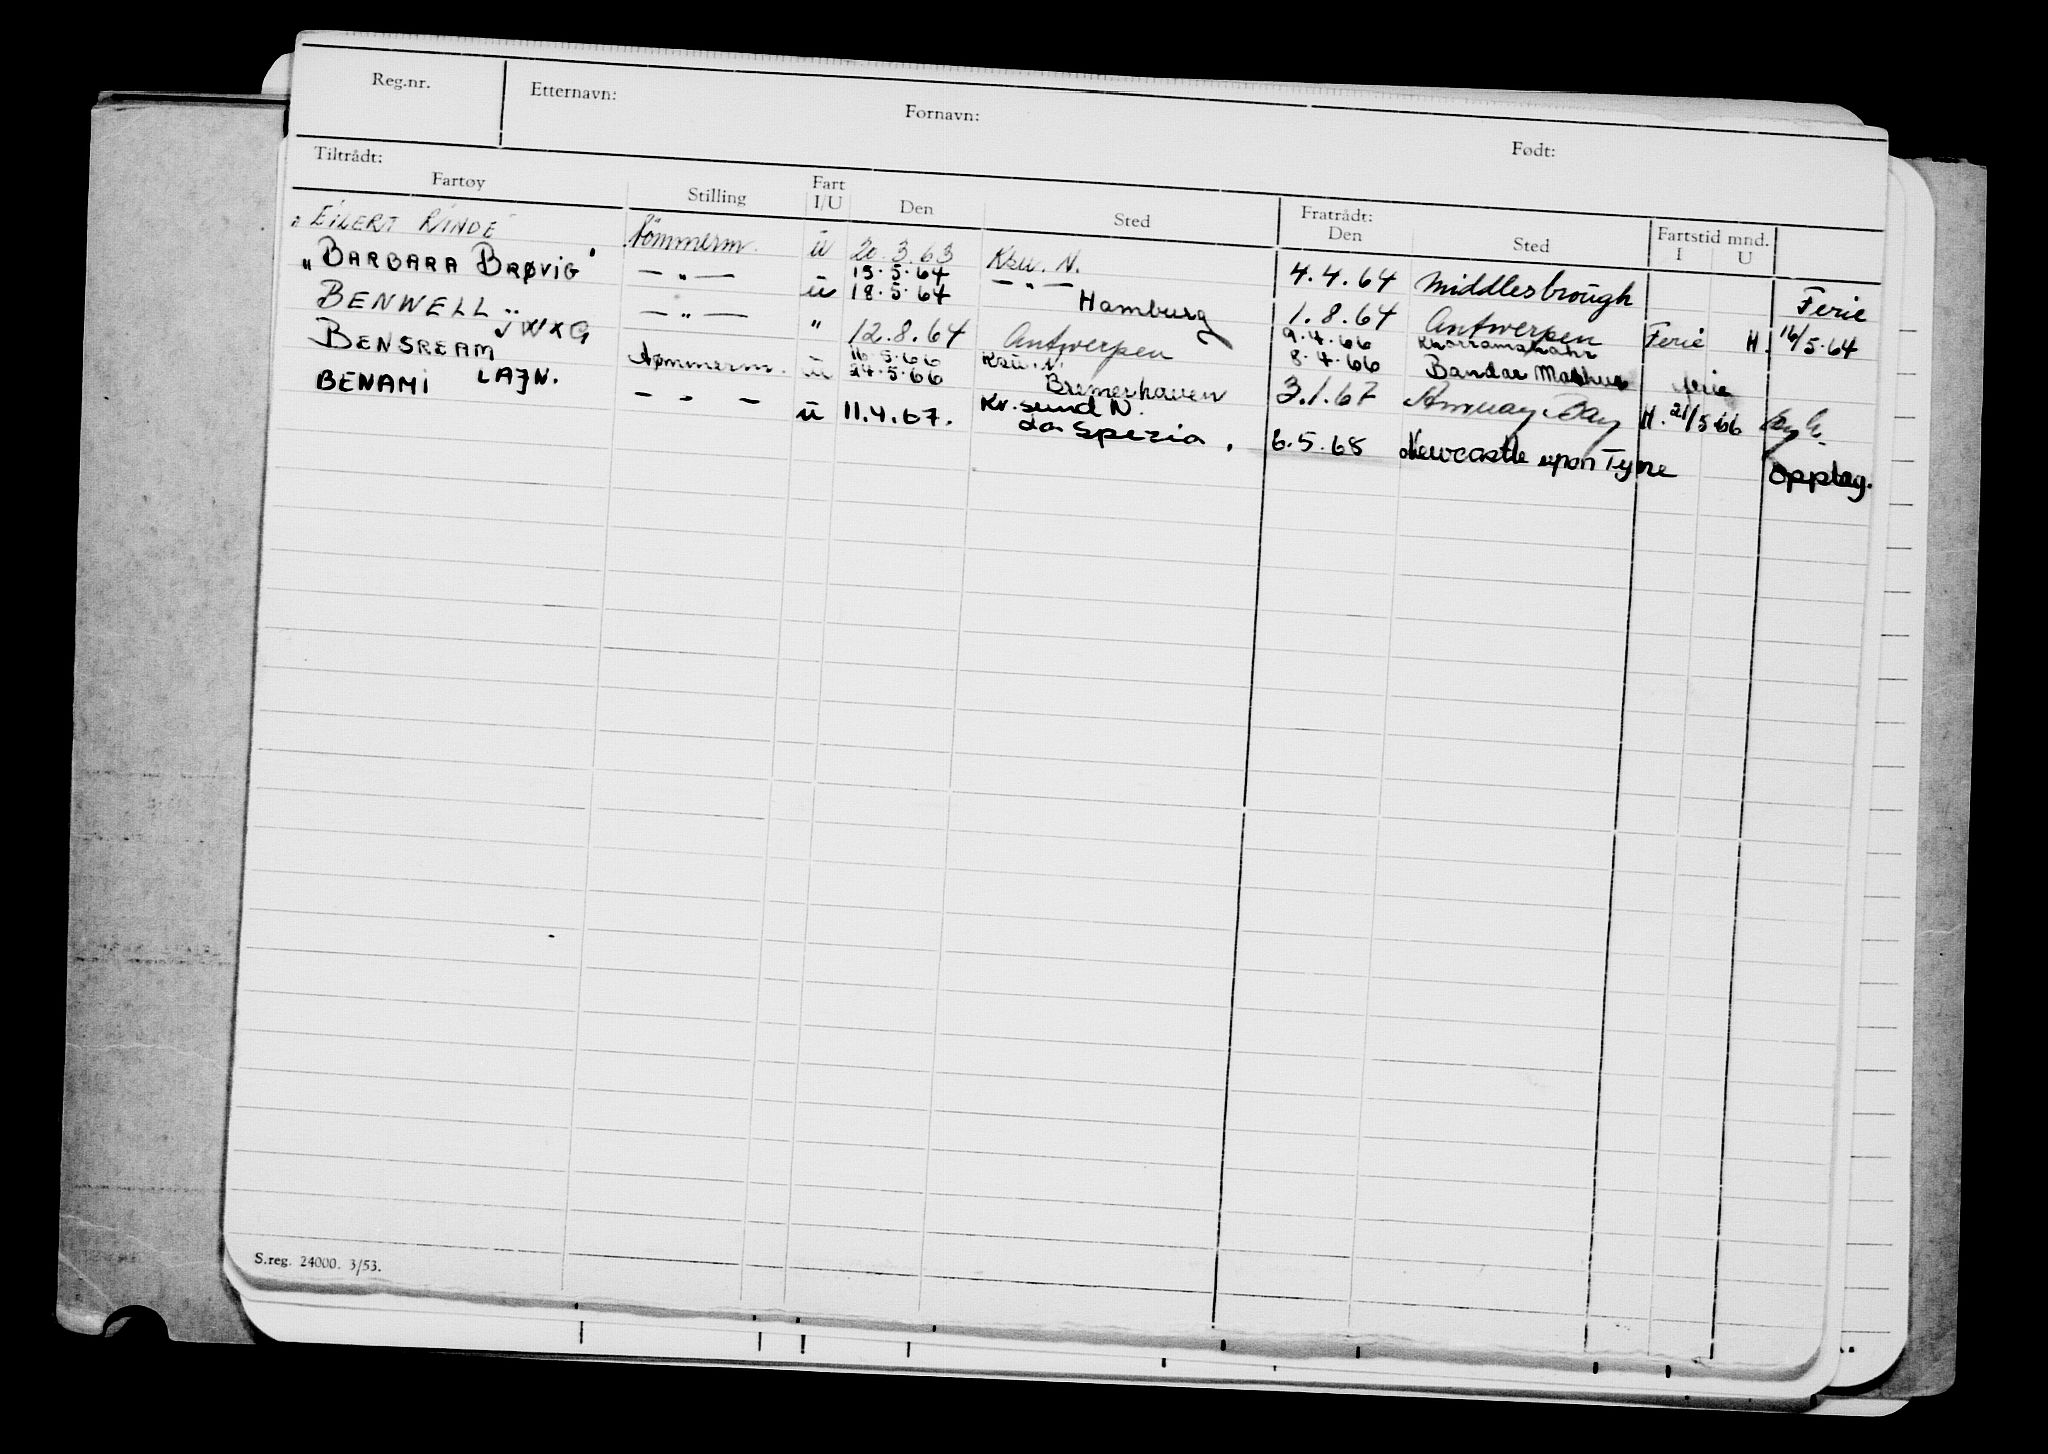 Reg.nr. Etternavn: Fornavn: Født:
Tiltrådt: Fratrådt: Fartstid mnd.
Fartøy Stilling Fart I/U Den Sted Den Sted I U
" EILERT RINDE Tömmerm. ü 20.3.63 Ksu. N. 4.4.64 Middlesbrough Ferie
" BARBARA BRØVIG" — " — ü 15.5.64 — " — 1.8.64 Antwerpen Ferie H. 16/5.64
18.5.64 Hamburg
BENWELL JWXG — " — " 12.8.64 Antwerpen 9.4.66 Khorramshahr
8.4.66 Bandar ferie
BENSREAM LAJN. Tømmerm. ü 16.5.66 Ksu. N. 3.1.67 Amuay Bay H. 21/5.66
24.5.66 Bremerhaven
BENAMI — " — ü 11.4.67. Kr.sund N. 6.5.68 Newcastle upon Tyne Opplag.
La Spezia.
S.reg. 24000. 3/53.